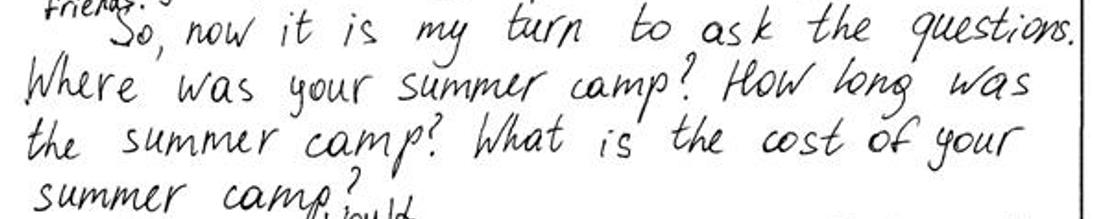 friends.
So, now it is my turn to ask the questions.
Where was your summer camp? How long was
the summer camp? What is the cost of your
summer camp?